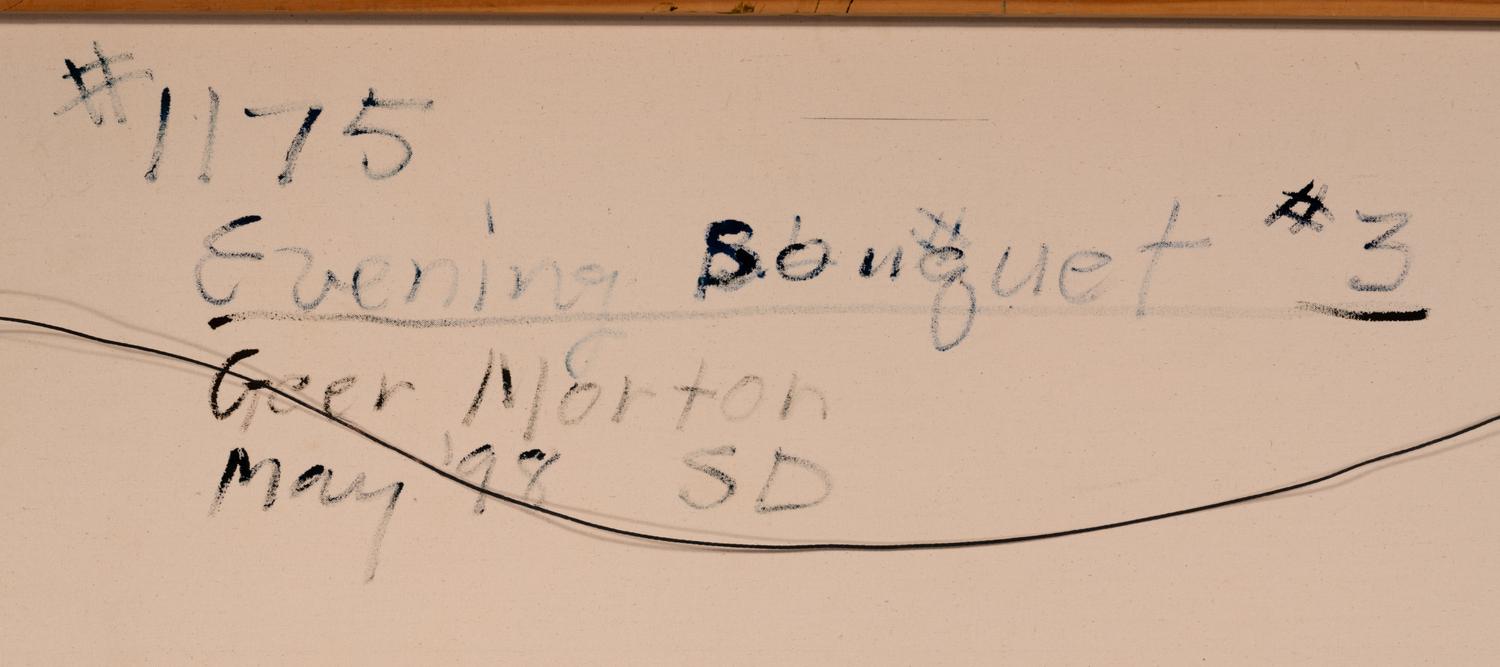 #1175
Evening Bouquet #3
Geer Morton
May '98 SD